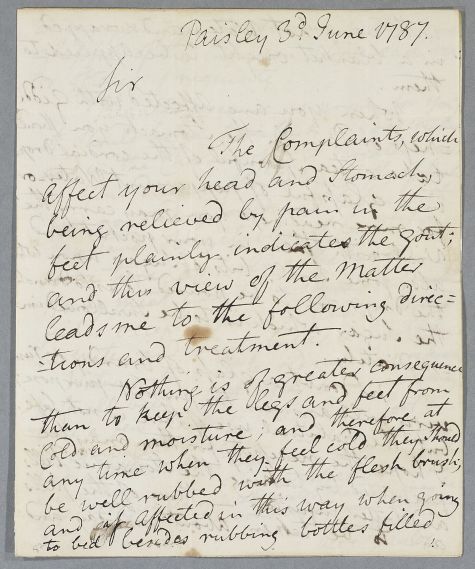 Paisley 3d. June 1787.
Sir
The Complaints, which
affect your head and Stomach,
being relieved by pain in the
feet plainly indicates the gout;
and this view of the Matter
leads me to the following direc-
-tions and treatment.
Nothing is of greater consequence
than to keep the legs and feet from
Cold and moisture; and therefore at
any time when they feel cold they should
be well rubbed with the flesh brush;
and if affected in this way when going
to bed besides rubbing bottles filled